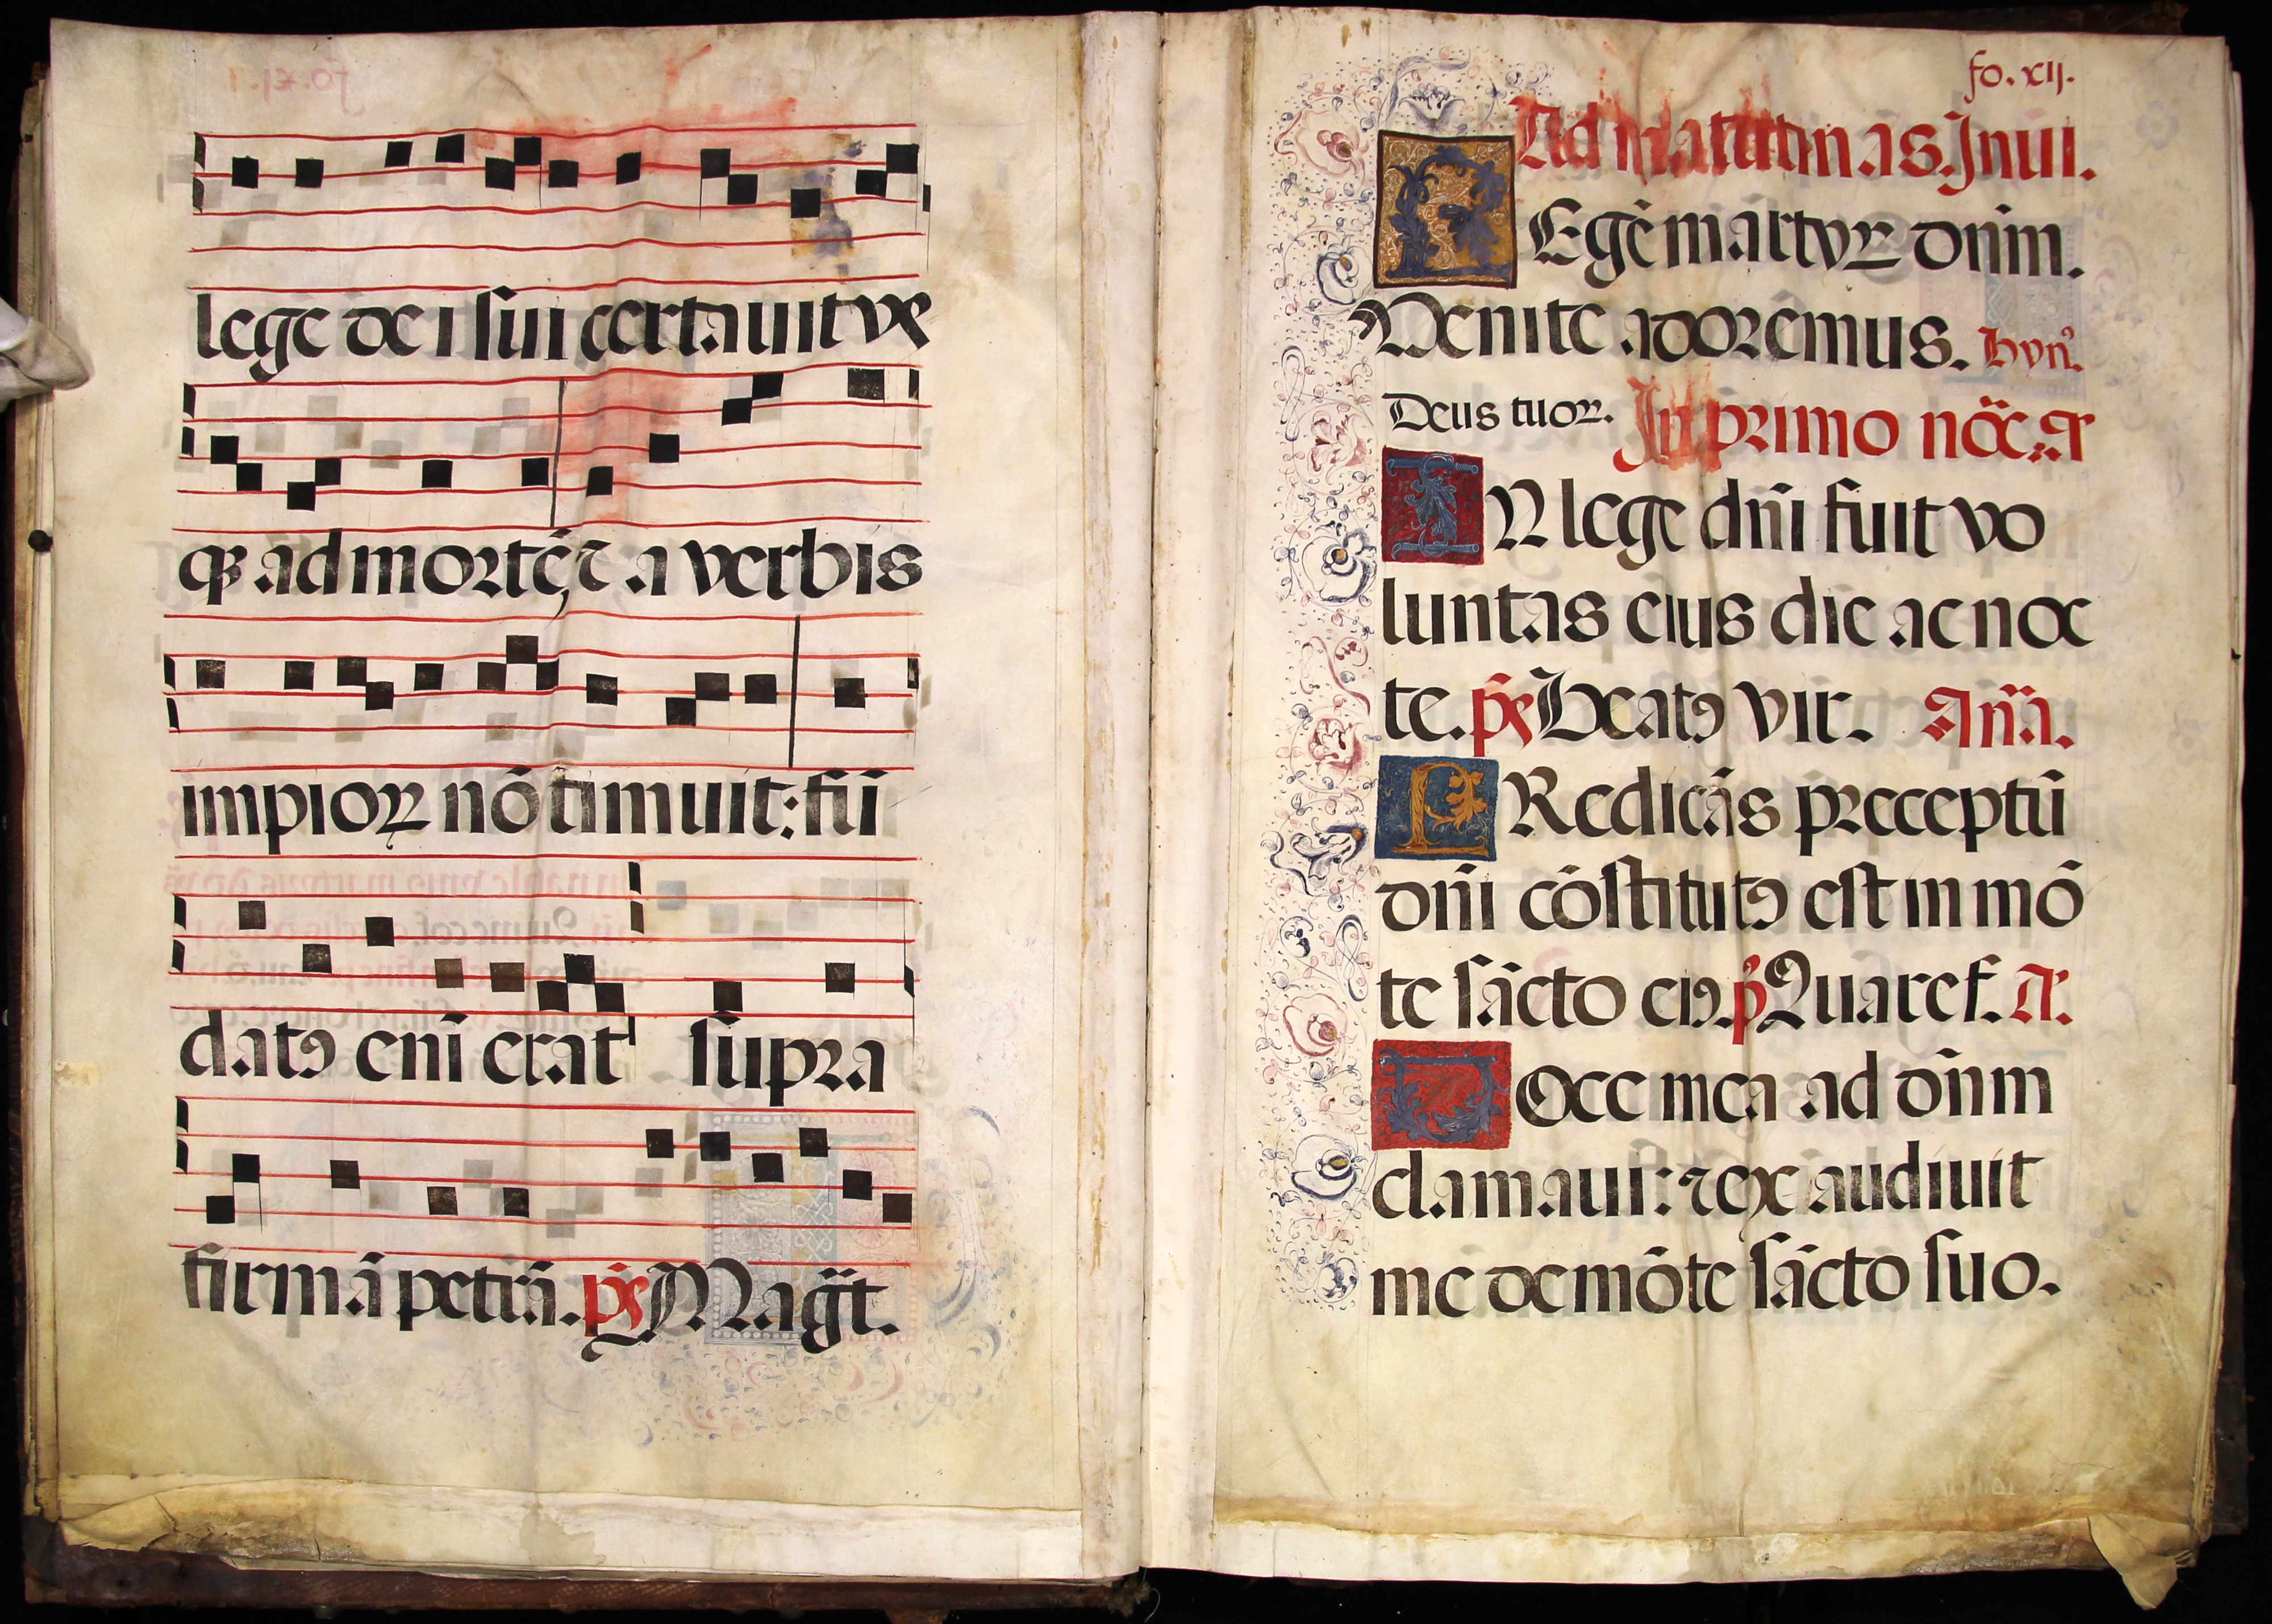 lege dei sui certauit vs
qꝫ ad mortē, ⁊ a verbis
impioꝝ nō timuit: fū
datꝰ enī erat supra
firmā petrā. ps̄ Magt̄.
fo. xij.
Ad matutinas. Inui.
REgē martyꝝ dn̄m.
Venite adorēmus. hyn̄.
Deus tuoꝝ. In primo noc̄. a͞
IN lege dn̄i fuit vo
luntas eius die ac noc
te. ps̄ Beatꝰ vir. An̄a.
PRedicās preceptū
dn̄i cōstitutꝰ est in mō
te sācto eiꝰ. p̄ Quare f. A͞.
VOce mea ad dn̄m
clamaui: ⁊ exaudiuit
me de mōte sācto suo.